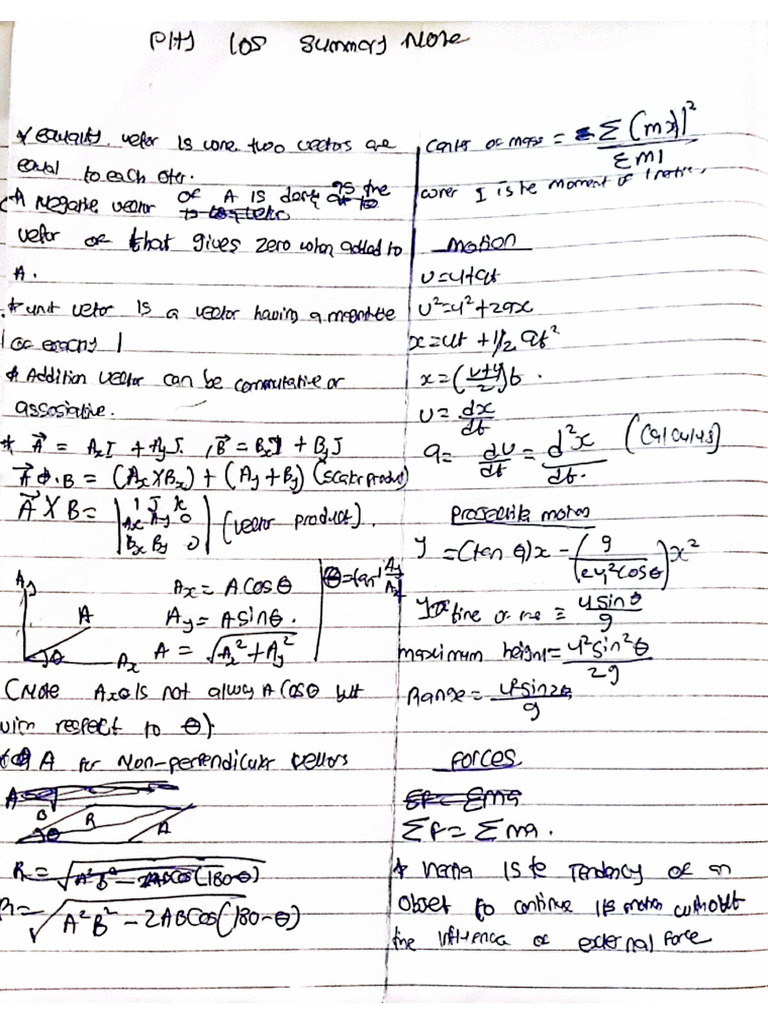 PHY 108 Summary Note
* equality vetor is were two vectors are
equal to each oter.
* A Negative vector of A is done as the
vector of that gives zero when added to
A.
* unit vetor is a vector having a
of exactly 1
* Addition vector can be commutative or
assosiative.
* A⃗ = AxI + AyJ. , B⃗ = BxI + ByJ
A⃗ . B = (Ax × Bx) + (Ay + By) (scalar product)
A⃗ × B = | I J K | (vector product).
| Ax Ay 0 |
| Bx By 0 |
Ay
A
θ
Ax
Ax = A cos θ
Ay = A sin θ.
A = √Ax² + Ay²
θ = tan⁻¹ Ay/Ax
(Note Ax is not always A cos θ but
with respect to θ)
A for Non-perpendicular vectors
B
R
θ
A
R = √A²B² - 2ABCos(180-θ)
R = √A²B² - 2ABCos(180-θ)
Center of mass = Σ(mx)|²/Σm1
were I is the moment of inertia,
motion
v = u + at
v² = u² + 2ax
x = ut + 1/2 at²
x = (v+u/2)t.
v = dx/dt
a = dv/dt = d²x/dt. (calculus)
Projectile motion
y = (tan θ)x - (g/(2u²cosθ))x²
time of = u sin θ/g
maximum height = u² sin² θ/2g
Range = u² sin 2θ/g
Forces
ΣF = Σma
ΣF = Σma.
* Inertia is te Tendency of an
Object to continue its motion without
the influence of external force